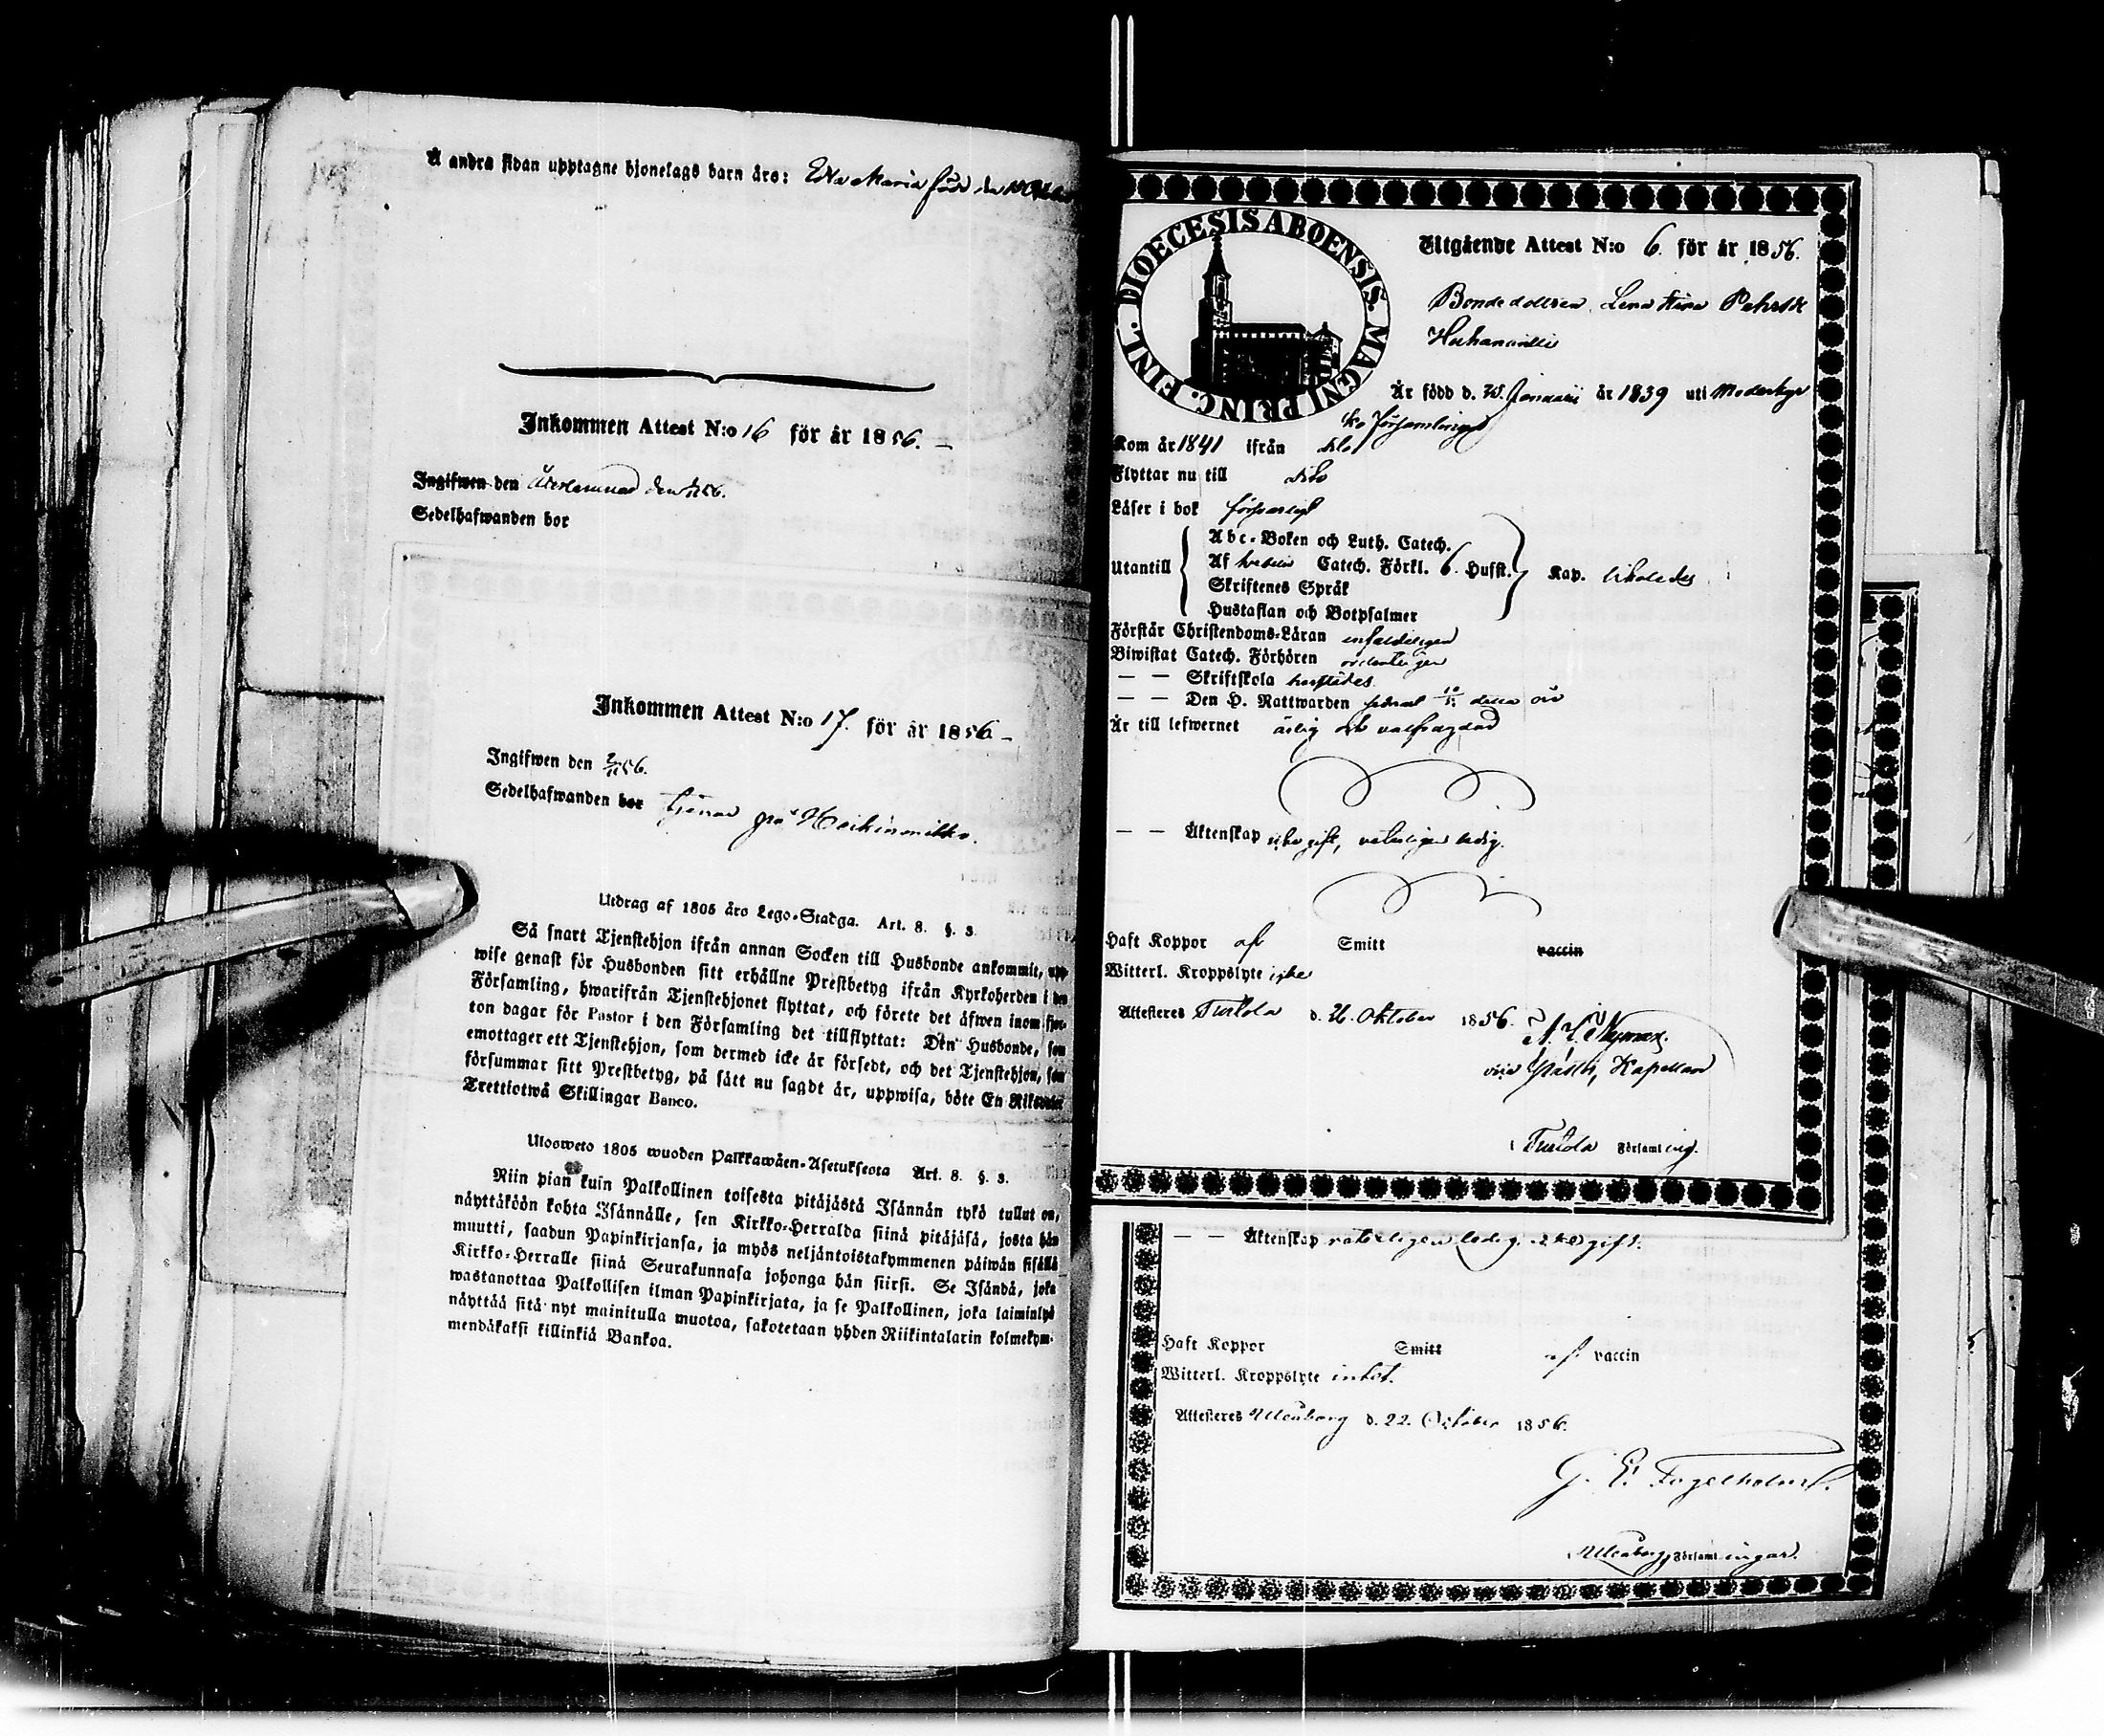 Å andra sidan upptagne hjonelags barn äro: Maria född den
Inkommen Attest N:o 16 för år 1856. —
Ingifwen den Återlemnad den 56.
Sedelhafwanden bor
Inkommen Attest N:o 17. för år 1856 —
Ingifwen den 56.
Sedelhafwanden bor tjenar på Heikinmikko.
Utdrag af 1805 års Lego-Stadga. Art. 8. §. 3.
Så snart Tjenstehjon ifrån annan Socken till Husbonde ankommit, upp-
wise genast för Husbonden sitt erhållne Prestbetyg ifrån Kyrkoherden i den
Församling, hwarifrån Tjenstehjonet flyttat, och förete det äfwen inom fjor-
ton dagar för Pastor i den Församling det tillflyttat: Den Husbonde, som
emottager ett Tjenstehjon, som dermed icke är försedt, och det Tjenstehjon, som
försummar sitt Prestbetyg, på sätt nu sagdt är, uppwisa, böte En Riksdaler
Trettiotwå Skillingar Banco.
Ulosweto 1805 wuoden Palkkawäen-Asetuksesta Art. 8. §. 3.
Niin pian kuin Palkollinen toisesta pitäjästä Isännän tykö tullut on,
näyttäköön kohta Isännälle, sen Kirkko-Herralda siinä pitäjäsä, josta hän
muutti, saadun Papinkirjansa, ja myös neljäntoistakymmenen päiwän sisällä
Kirkko-Herralle siinä Seurakunnasa johonga hän siirsi. Se Isändä, joka
wastanottaa Palkollisen ilman Papinkirjata, ja se Palkollinen, joka laiminlyö
näyttää sitä nyt mainitulla muotoa, sakotetaan yhden Riikintalarin kolmekym-
mendäkaksi killinkiä Bankoa.
DIOECESIS ABOENSIS. MAGNI PRINC. FINL.
Utgående Attest N:o 6. för år 1856.
Bondedottren Lena Stina
Är född d. Januarii år 1839 uti Moderkyr
ko församlingen
Kom år 1841 ifrån
Flyttar nu till
Läser i bok försvarligt
Utantill
Abc-Boken och Luth. Catech.
Af Svebelii Catech. Förkl. 6. Husst.
Skriftenes Språk
Hustaflan och Botpsalmer
Kap. likaledes
Förstår Christendoms-Läran enfaldeligen
Biwistat Catech. Förhören ordenteligen
— — Skriftskola härstädes
— — Den H. Nattwarden detta år
Är till lefwernet ärlig och välfrägdad
— — Äktenskap icke gift, veterligen ledig.
Haft Koppor af Smitt vaccin
Witterl. Kroppslyte icke
Attesteres Turtola d. 26. Oktober 1856.
vice Pastor, Kapellan
Turtola Församling.
— — Äktenskap veterligen ledig. gift.
Haft Koppor Smitt af vaccin
Witterl. Kroppslyte intet.
Attesteres Uleåborg d. 22. October 1856.
G. E. Fogelholm.
Uleåborgs Församlingar.